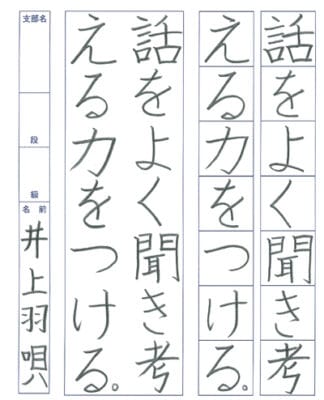 話をよく聞き考
える力をつける。
話をよく聞き考
える力をつける。
支部名
段
級
名前
井上羽唄